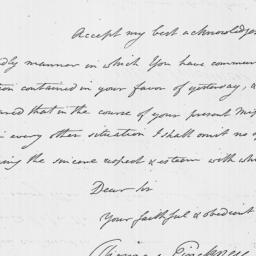 Accept my best acknowledgm
dly manner in which You have commun
tion contained in your favor of yesterday, &
ured that in the course of your present Miss
in every other situation I shall omit no op
ing the sincere respect & esteem with whi
Dear Sir
Your faithful & obedient
Thomas Pinckney